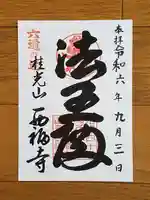 奉拝 令和六年九月三日
法王殿
六道の辻 桂光山
西福寺